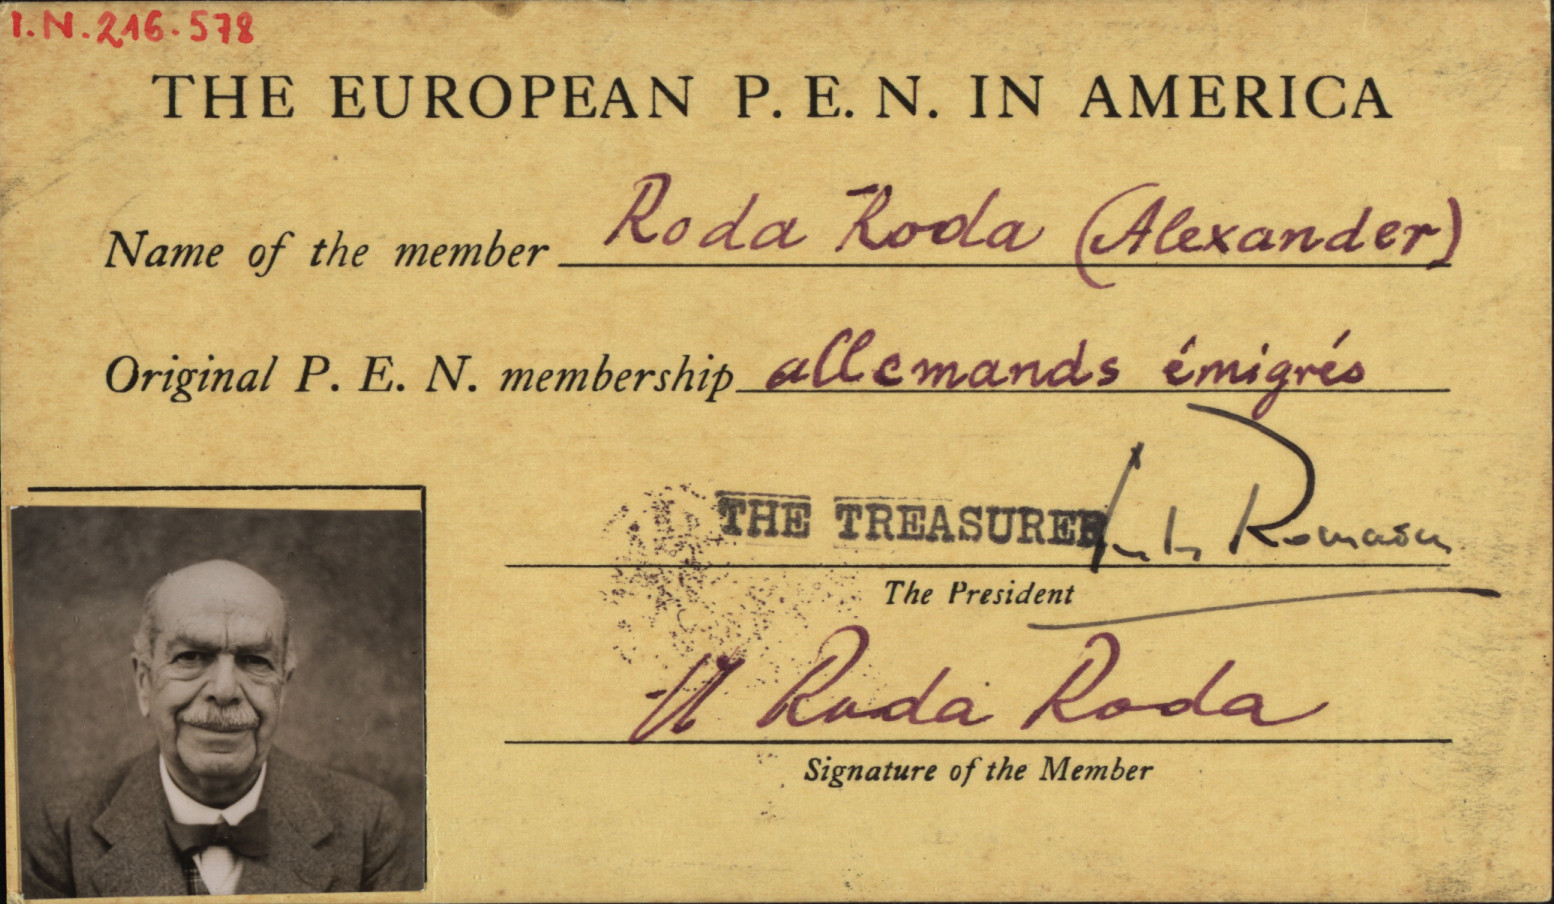 I.N. 216.578
THE EUROPEAN P. E. N. IN AMERICA
Name of the member Roda Roda (Alexander)
Original P. E. N. membership allemands émigrés
THE TREASURER
The President
A Roda Roda
Signature of the Member